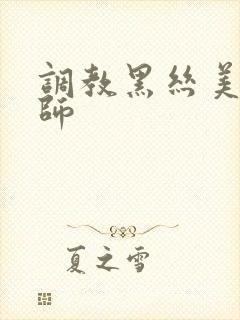 調教黑絲美
師
夏之雪